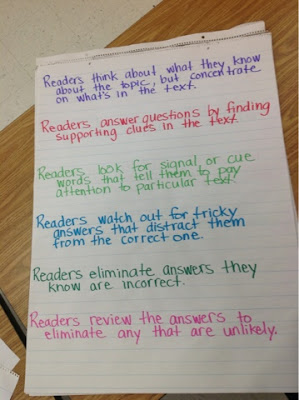 Readers think about what they know
about the topic, but concentrate
on what's in the text.
Readers answer questions by finding
supporting clues in the text.
Readers look for signal, or cue
words that tell them to pay
attention to particular text.
Readers watch out for tricky
answers that distract them
from the correct one.
Readers eliminate answers they
know are incorrect.
Readers review the answers to
eliminate any that are unlikely.